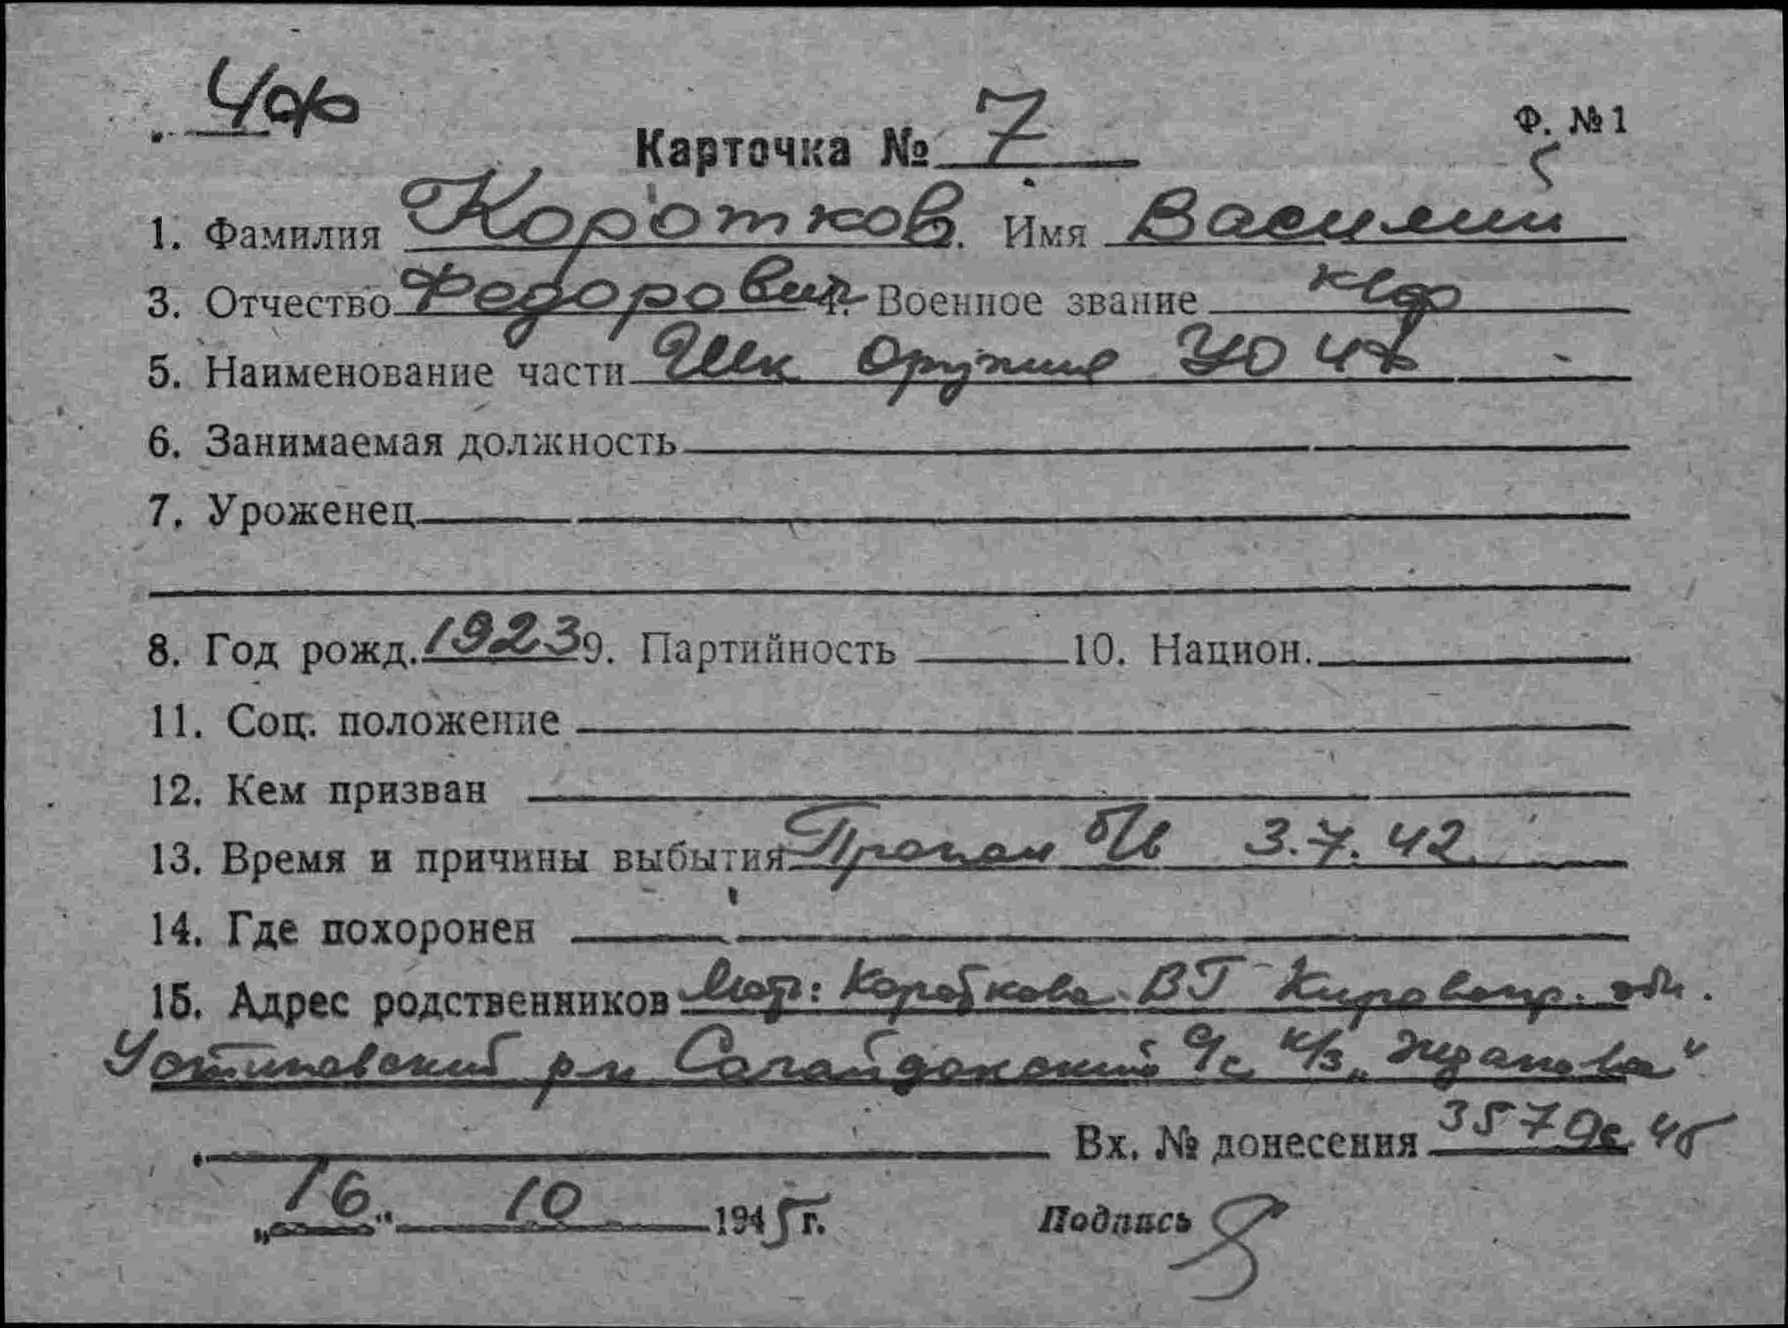 Чф
Ф. №1
Карточка № 7
1. Фамилия Коротков. Имя Василий
3. Отчество Федорович 4. Военное звание к-ф
5. Наименование части Шк Оружия УО ЧФ
6. Занимаемая должность
7. Уроженец
8. Год рожд. 1923 9. Партийность 10. Национ.
11. Соц. положение
12. Кем призван
13. Время и причины выбытия Пропал б/в 3.7.42
14. Где похоронен
15. Адрес родственников Мать: Короткова ВГ Кировогр. обл.
Устиновский р-н Сагайдакский с/с к/з „Жданова"
Вх. № донесения 3570с 45
„16" 10 1945 г. Подпись